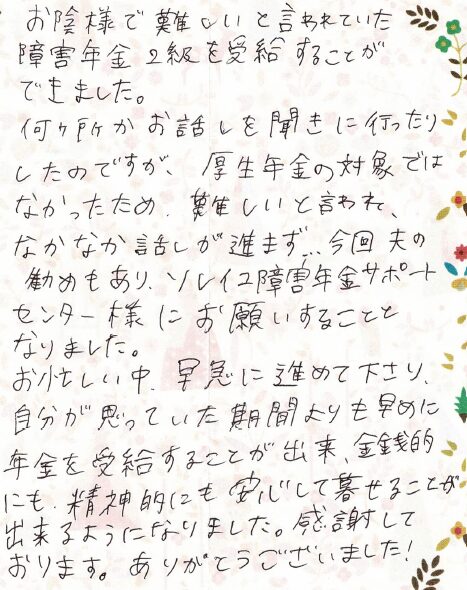 お陰様で難しいと言われていた
障害年金2級を受給することが
できました。
何ヶ所かお話しを聞きに行ったり
したのですが、厚生年金の対象では
なかったため、難しいと言われ、
なかなか話しが進まず…今回夫の
勧めもあり、ソレイユ障害年金サポート
センター様にお願いすることと
なりました。
お忙しい中、早急に進めて下さり、
自分が思っていた期間よりも早めに
年金を受給することが出来、金銭的
にも、精神的にも安心して暮せることが
出来るようになりました。感謝して
おります。ありがとうございました!